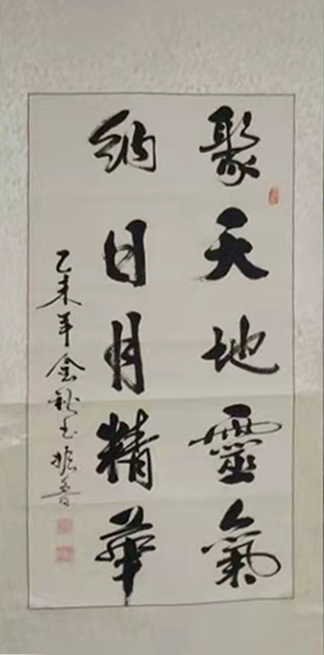 聚天地靈氣
納日月精華
乙未年金秋書振魯